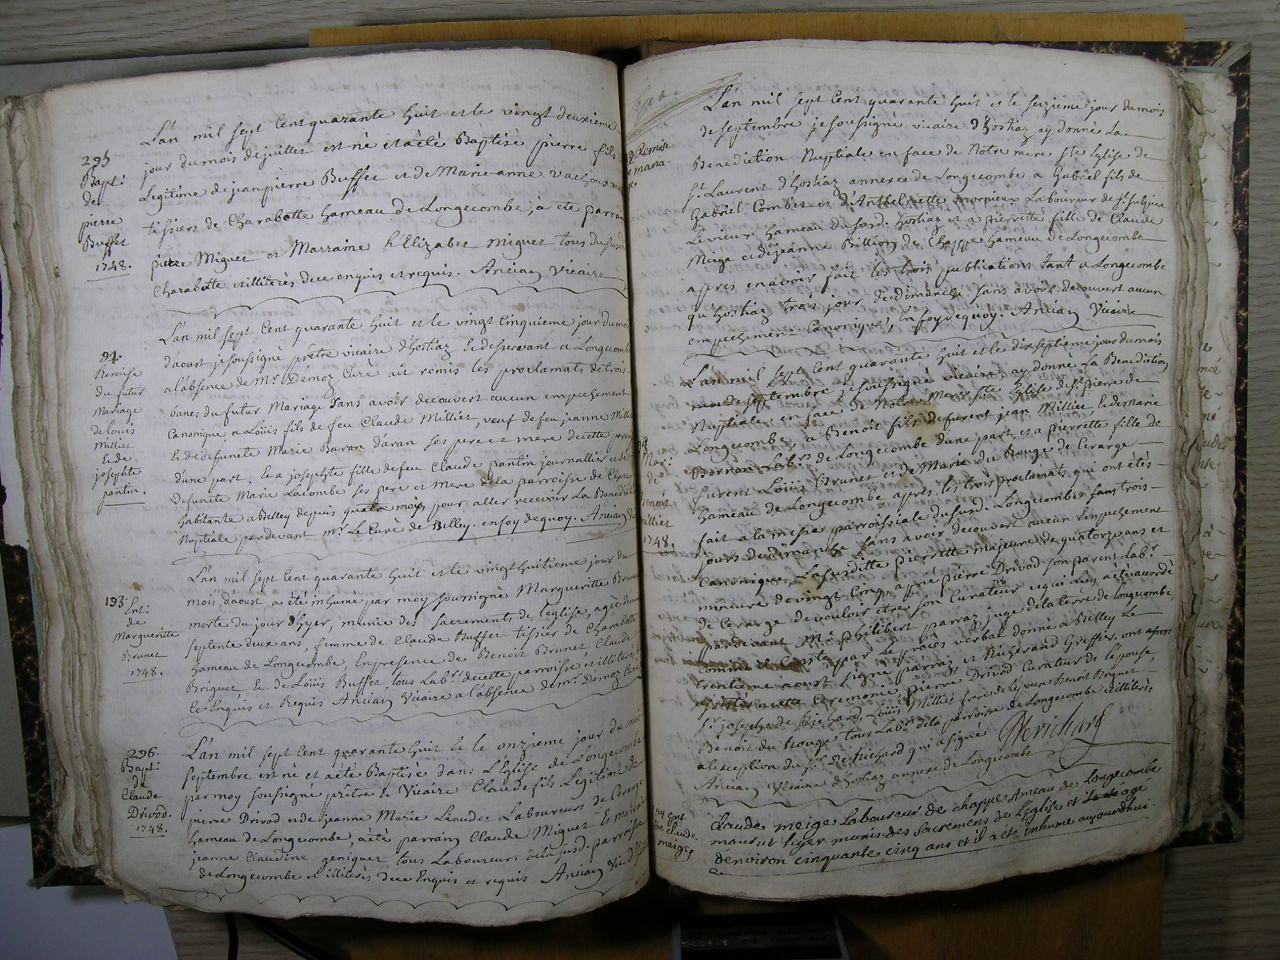 295
Bapt:
de
pierre
Buffet
1748.
L'an mil sept Cent quarante huit et le vingt deuxieme
jour du mois de juillet est né et a été Baptisé pierre fils
Legitime de jean pierre Buffet et de Marie anne
tissiers de Charabotte hameau de Longecombe, a été parrain
Miguet et Marraine Elizabet Miguet tous du susd.
Charabotte et illiterés de ce enquis et requis. Ancian Vicaire
94.
Remise
du futur
Mariage
de Loüis
Milliet
& de
josephte
pantin.
L'an mil sept Cent quarante huit et le vingt Cinquieme jour du mois
daoust je soussigné prêtre vicaire d'hostiaz & deservant a Longecombe
a l'absence de Mr. Demoz Curé ait remis les proclamats de trois
bancs du futur Mariage sans avoir decouvert aucun empechement
Canonique a Loüis fils de feu Claude Milliet, veuf de feu jeanne Milliet
& de defunte Marie Baron ses pere et mere de cette parroisse
d'une part, & a josephte fille de feu Claude pantin journallier et de
defunte Marie Lacombe ses pere et Mere de la parroisse de
habitante a Belley depuis quatre mois pour aller recevoir la Benediction
Nuptiale par devant Mr. Le Curé de Belley. en foy de quoy. Ancian
193
Ent:
de
Margueritte
Brunet
1748.
L'an mil sept Cent quarante huit et le vingt huitieme jour du
mois daoust a été inhumé par moy soussigné Margueritte Brunet
morte du jour d'hyer, munie des Sacrements de l'eglise, agée de
septente deux ans, femme de Claude Buffet tissier de Charabotte
hameau de Longecombe, En presence de Benoit Brunet, Claude
Briguet & de Loüis Buffet, tous Labrs. de cette parroisse, et illiterés
de ce Enquis et Requis Ancian Vicaire a l'absence de mr. demoz Curé
296.
Bapt:
de
Claude
Drivod.
1748.
L'an mil sept Cent quarante huit & le onzieme jour du mois
septembre est né et a été Baptisé dans L'Eglise de Longecombe
par moy soussigné prêtre & Vicaire Claude fils Legitime de
pierre Drivod et de jeanne Marie Liaudet Laboureurs de
hameau de Longecombe, a été parrain Claude Miguet & maraine
jeanne Claudine geniquet, tous Laboureurs de la susd. parroisse
de Longecombe et illiterés de ce Enquis et requis Ancian Vic.
L'an mil sept Cent quarante huit et le seizieme jour du mois
de septembre je soussigné vicaire d'hostiaz ay donné La
Benediction Nuptiale en face de Notre mere ste Eglise de
St. Laurent d'hostiaz annexe de Longecombe a Gabriël fils de
Gabriël Combet et d'Anthelmette
hameau du susd. hostiaz et a pierrette fille de Claude
Meige et de jeanne Billion de Chappe hameau de Longecombe
apres en avoir fait les trois publications tant a Longecombe
qu'hostiaz trois jour de dimanche sans avoir decouvert aucun
empechement Canonique, En foy de quoy. Ancian Vicaire
Mari:
de
Benoit
Milliet
1748.
L'an mil sept Cent quarante huit et le dix septieme jour du mois
de septembre je soussigné vicaire ay donné la Benediction
Nuptiale en face de Notre Mere Ste Eglise de St. pierre de
Longecombe, a Benoit fils de furent jean Milliet & de marie
Labrs. de Longecombe d'une part, et a pierrette fille de
furent Loüis Brunet et de Marie du Rouge de Cerarge
hameau de Longecombe apres les trois proclamats qui ont étés
fait a la messe parroissiale du susd. Longecombe trois
jours de dimanche sans avoir decouvert aucun Empechement
Canonique, La susditte pierrette majeure de quatorze ans et
mineure de vingt Cinq, assisté pierre Drivod son parent Labr.
de Cerarge de vouloir etre son Curateur ce qui luy a été accordé
pardevant Me philibert parraz, juge de la terre de Longecombe,
par le proces verbal donné a Belley Le
trentieme aoust signé parraz et Greffier, ont
Ceremonie, pierre Drivod Curateur de l'epouse,
Sr. joseph de Loüis Milliet frere de l'epoux Benoit Briguet,
Benoit du Rouge tous Labrs. de la parroisse de Longecombe et illiterés
a l'exception du Sr. de Richard qui a signé
Ancian Vicaire d'hostiaz annexe de Longecombe
194 Ent:
de Claude
meige
Claude meige Laboureur de chappe Ameau de Longecombe
mourut hyer munis des sacremens de l'Eglise et age
d'environ cinquante cinq ans et il a eté inhumé aujourdhui